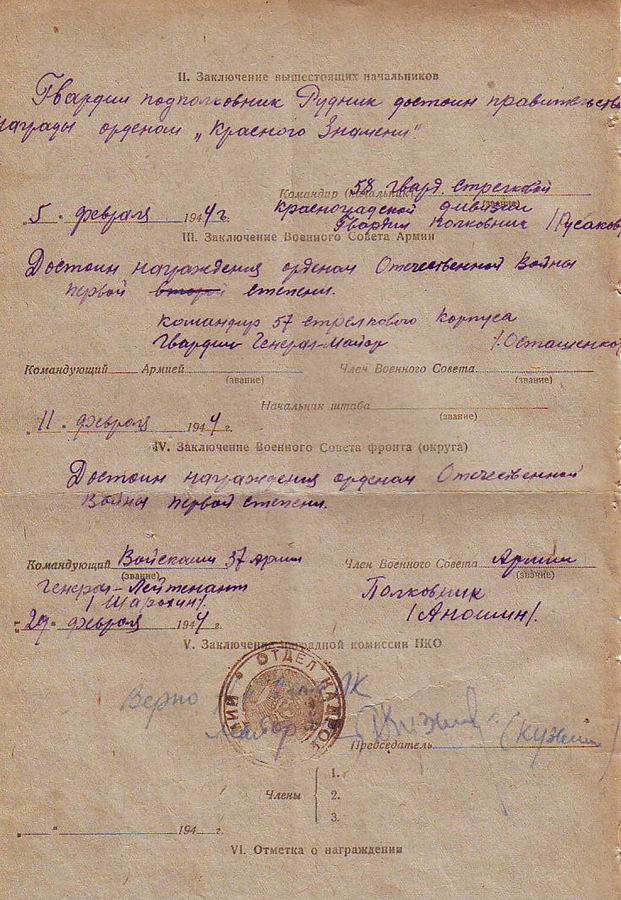 II. Заключение вышестоящих начальников
Гвардии подполковник Рудник достоин правительств
награды орденом „Красного Знамени"
Командир (начальник) 58 гвард. стрелковой
(звание)
5. февраля 1944 г. Красноградской дивизии
Гвардии Полковник /Русаков
III. Заключение Военного Совета Армии
Достоин награждения орденом Отечественной Войны
первой второй степени.
командир 57 стрелкового корпуса
Гвардии Генерал-Майор /Осташенко
Командующий Армией Член Военного Совета
(звание) (звание)
Начальник штаба
(звание)
"11" февраля 1944 г.
IV. Заключение Военного Совета фронта (округа)
Достоин награждения орденом Отечественной
Войны первой степени.
Командующий Войсками 37 армии Член Военного Совета Армии
(звание) (звание)
Генерал-Лейтенант Полковник
/Шарохин/. /Аношин/.
"29" февраля 1944 г.
V. Заключение наградной комиссии НКО
ОТДЕЛ КАДРОВ
Верно
Председатель (Кузьмин)
Члены
1.
2.
3.
" " 194 г.
VI. Отметка о награждении